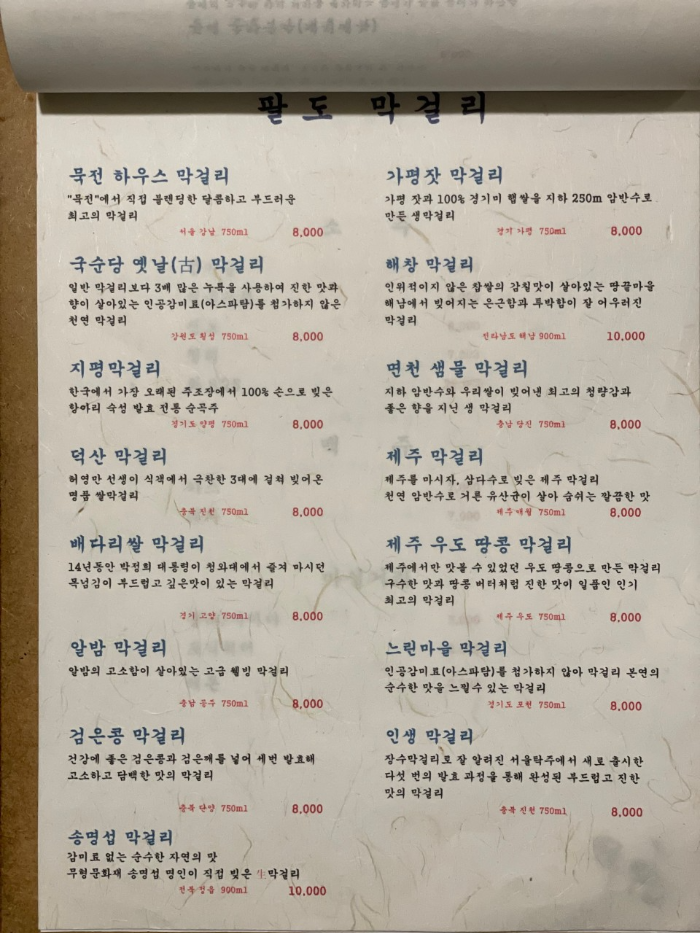 팔도 막걸리
묵전 하우스 막걸리
"묵전"에서 직접 블렌딩한 달콤하고 부드러운
최고의 막걸리
서울 강남 750ml 8,000
국순당 옛날(古) 막걸리
일반 막걸리보다 3배 많은 누룩을 사용하여 진한 맛과
향이 살아있는 인공감미료(아스파탐)를 첨가하지 않은
천연 막걸리
강원도 횡성 750ml 8,000
지평막걸리
한국에서 가장 오래된 주조장에서 100% 손으로 빚은
항아리 숙성 발효 전통 순곡주
경기도 양평 750ml 8,000
덕산 막걸리
허영만 선생이 식객에서 극찬한 3대에 걸쳐 빚어온
명품 쌀막걸리
충북 진천 750ml 8,000
배다리쌀 막걸리
14년동안 박정희 대통령이 청와대에서 즐겨 마시던
목넘김이 부드럽고 깊은맛이 있는 막걸리
경기 고양 750ml 8,000
알밤 막걸리
알밤의 고소함이 살아있는 고급 웰빙 막걸리
충남 공주 750ml 8,000
검은콩 막걸리
건강에 좋은 검은콩과 검은깨를 넣어 세번 발효해
고소하고 담백한 맛의 막걸리
충북 단양 750ml 8,000
송명섭 막걸리
감미료 없는 순수한 자연의 맛
무형문화재 송명섭 명인이 직접 빚은 生막걸리
전북 정읍 900ml 10,000
가평잣 막걸리
가평 잣과 100% 경기미 햅쌀을 지하 250m 암반수로
만든 생막걸리
경기 가평 750ml 8,000
해창 막걸리
인위적이지 않은 찹쌀의 감칠맛이 살아있는 땅끝마을
해남에서 빚어지는 은근함과 투박함이 잘 어우러진
막걸리
전라남도 해남 900ml 10,000
면천 샘물 막걸리
지하 암반수와 우리쌀이 빚어낸 최고의 청량감과
좋은 향을 지닌 생 막걸리
충남 당진 750ml 8,000
제주 막걸리
제주를 마시자. 삼다수로 빚은 제주 막걸리
천연 암반수로 거른 유산균이 살아 숨쉬는 말끔한 맛
제주 애월 750ml 8,000
제주 우도 땅콩 막걸리
제주에서만 맛볼 수 있었던 우도 땅콩으로 만든 막걸리
구수한 맛과 땅콩 버터처럼 진한 맛이 일품인 인기
최고의 막걸리
제주 우도 750ml 8,000
느린마을 막걸리
인공감미료(아스파탐)를 첨가하지 않아 막걸리 본연의
순수한 맛을 느낄수 있는 막걸리
경기도 포천 750ml 8,000
인생 막걸리
장수막걸리로 잘 알려진 서울탁주에서 새로 출시한
다섯 번의 발효 과정을 통해 완성된 부드럽고 진한
맛의 막걸리
충북 진천 750ml 8,000